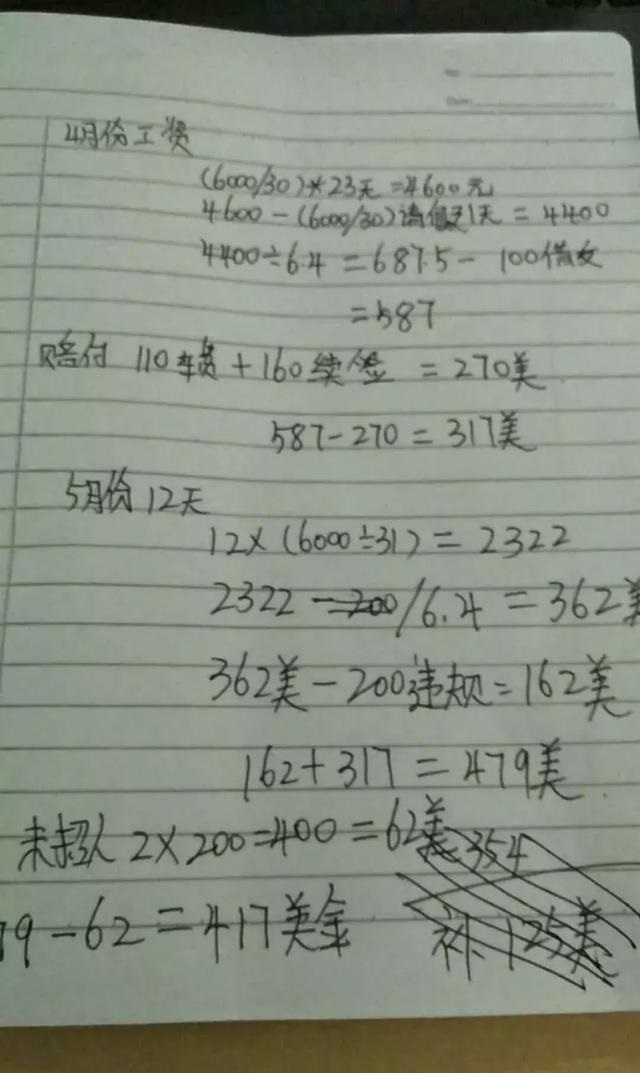 4月份工资
(6000/30)*23天=4600元
4600-(6000/30)请假1天=4400
4400÷6.4=687.5-100借支
=587
赔付 110车费+160续签=270美
587-270=317美
5月份12天
12×(6000÷31)=2322
2322-200/6.4=362美
362美-200违规=162美
162+317=479美
未超人 2×200=400=62美 354
79-62=417美金 补125美